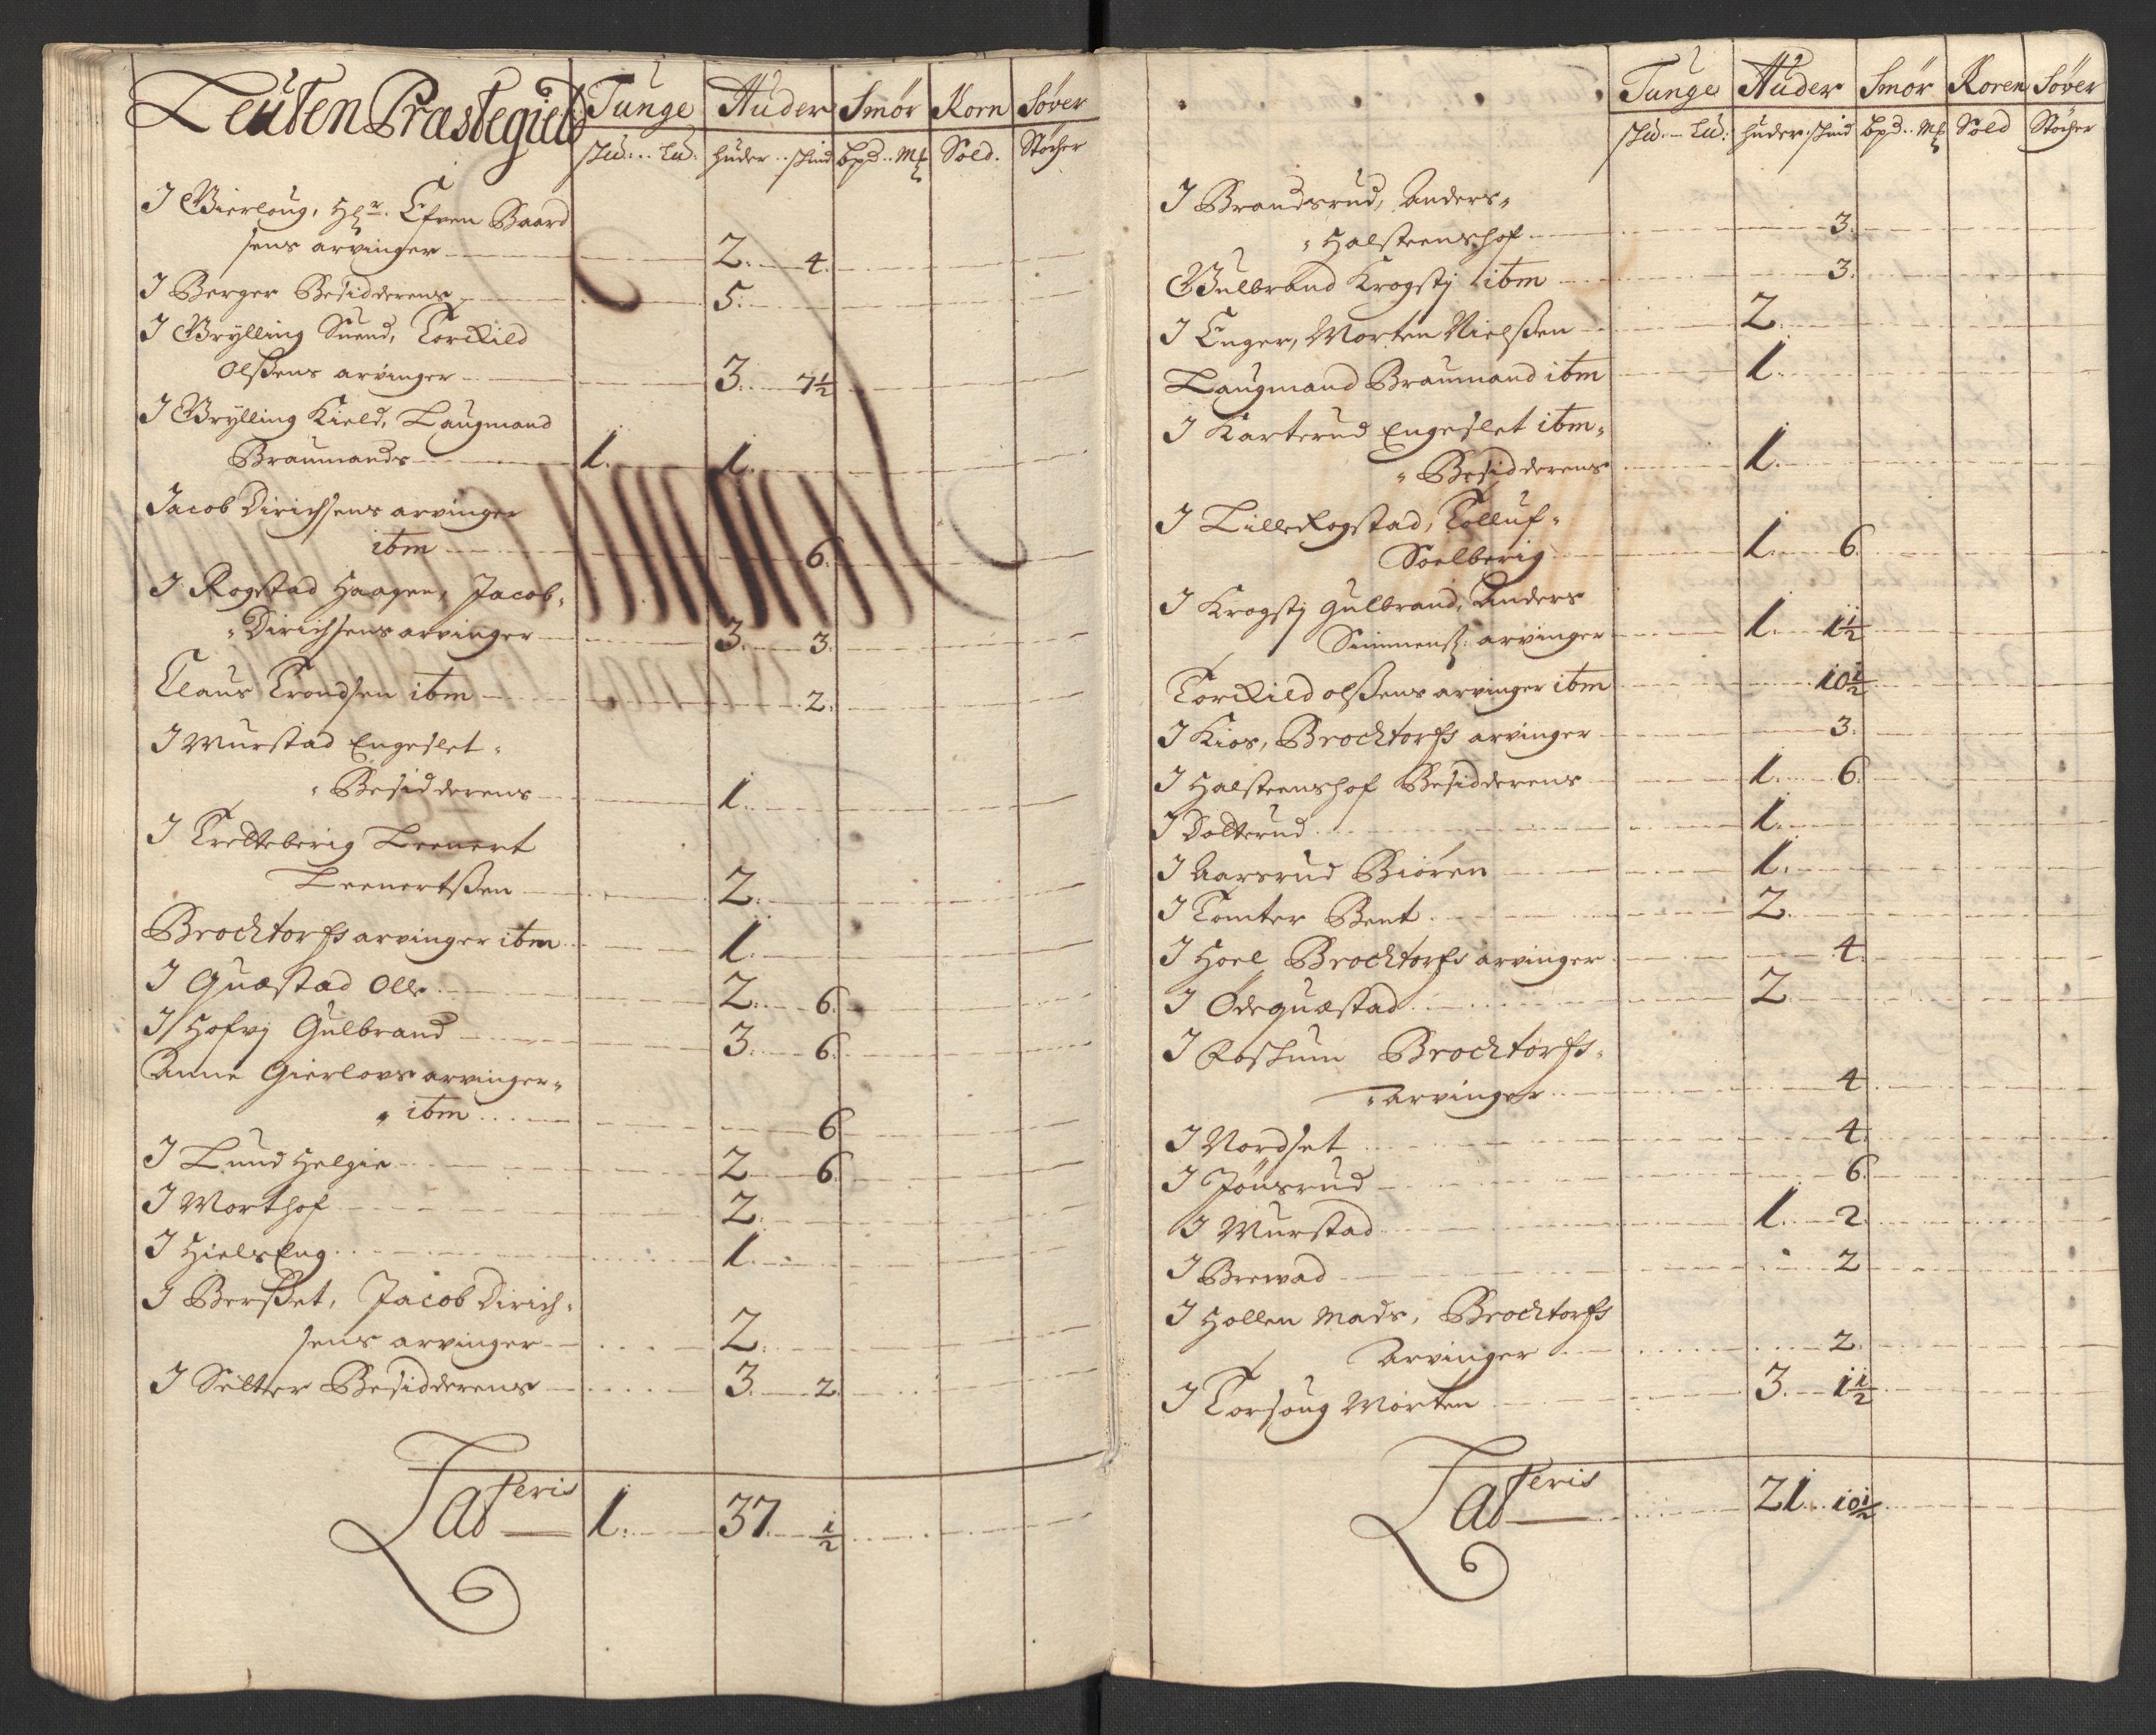 Leuten Præstegield Tunge Huder Smör Korn Söver
sku: .. Lu: huder .. skind bpd .. Mk Sold. Støcher
I Gierloug, Hr. Efven Baard
sens arvinger 2. 4.
I Berger Besidderens 5.
I Grylling Suend, Torkild
Olssens arvinger 3. 7½
I Grylling Kield, Laugmand
Braumands 1. 1.
Jacob Dirichsens arvinger
ibm 6.
I Rogstad Haagen, Jacob
Dirichsens arvinger 3. 3.
Claus Trondsen ibm 2.
I Murstad Engeslet
Besidderens 1.
I Tretteberig Leenert
Leenertssen 2.
Brocktorfs arvinger ibm 1.
I Quæstad Olle 2. 6.
I Hofvj Gulbrand 3. 6.
Anne Gierlovs arvinger
ibm 6
I Lund Helgie 2 6.
I Morthof 2.
I HielsEng 1.
I Bersset, Jacob Dirich
sens arvinger 2.
I Selter Besidderens 3. 2.
Lateris 1. 37. ½
Tunge Huder Smör Koren Söver
sku: .. Lu: huder. skind bpd .. Mk Sold Støcher
I Brandsrud, Anders
Halsteenshof 3.
Gulbrand Krogstj ibm 3.
I Enger, Morten Nielssen 2.
Laugmand Braumand ibm 1.
I Karterud Engeslet ibm
Besidderens 1.
I Lille Rogstad, Tolluf
Soelberig 1. 6.
I Krogstj Gulbrand, Anders
Simmens: arvinger 1. 1½
Torkild olssens arvinger ibm 10½
I Kios, Brocktorfs arvinger 3.
I Halsteenshof Besidderens 1. 6.
I Dolterud 1.
I Aarsrud Biören 1.
I Tomter Bent 2.
I Hoel Brocktorfs arvinger 4.
I Ödequæstad 2
I Roskum Brocktorfs
arvinger 4.
I Nordset 4.
I Jönsrud 6.
I Murstad 1. 2.
I Brevad 2
I Hollen Mads, Brocktorfs
Arvinger 2.
I Torsoug Morten 3. 1½
Lateris 21. 10½